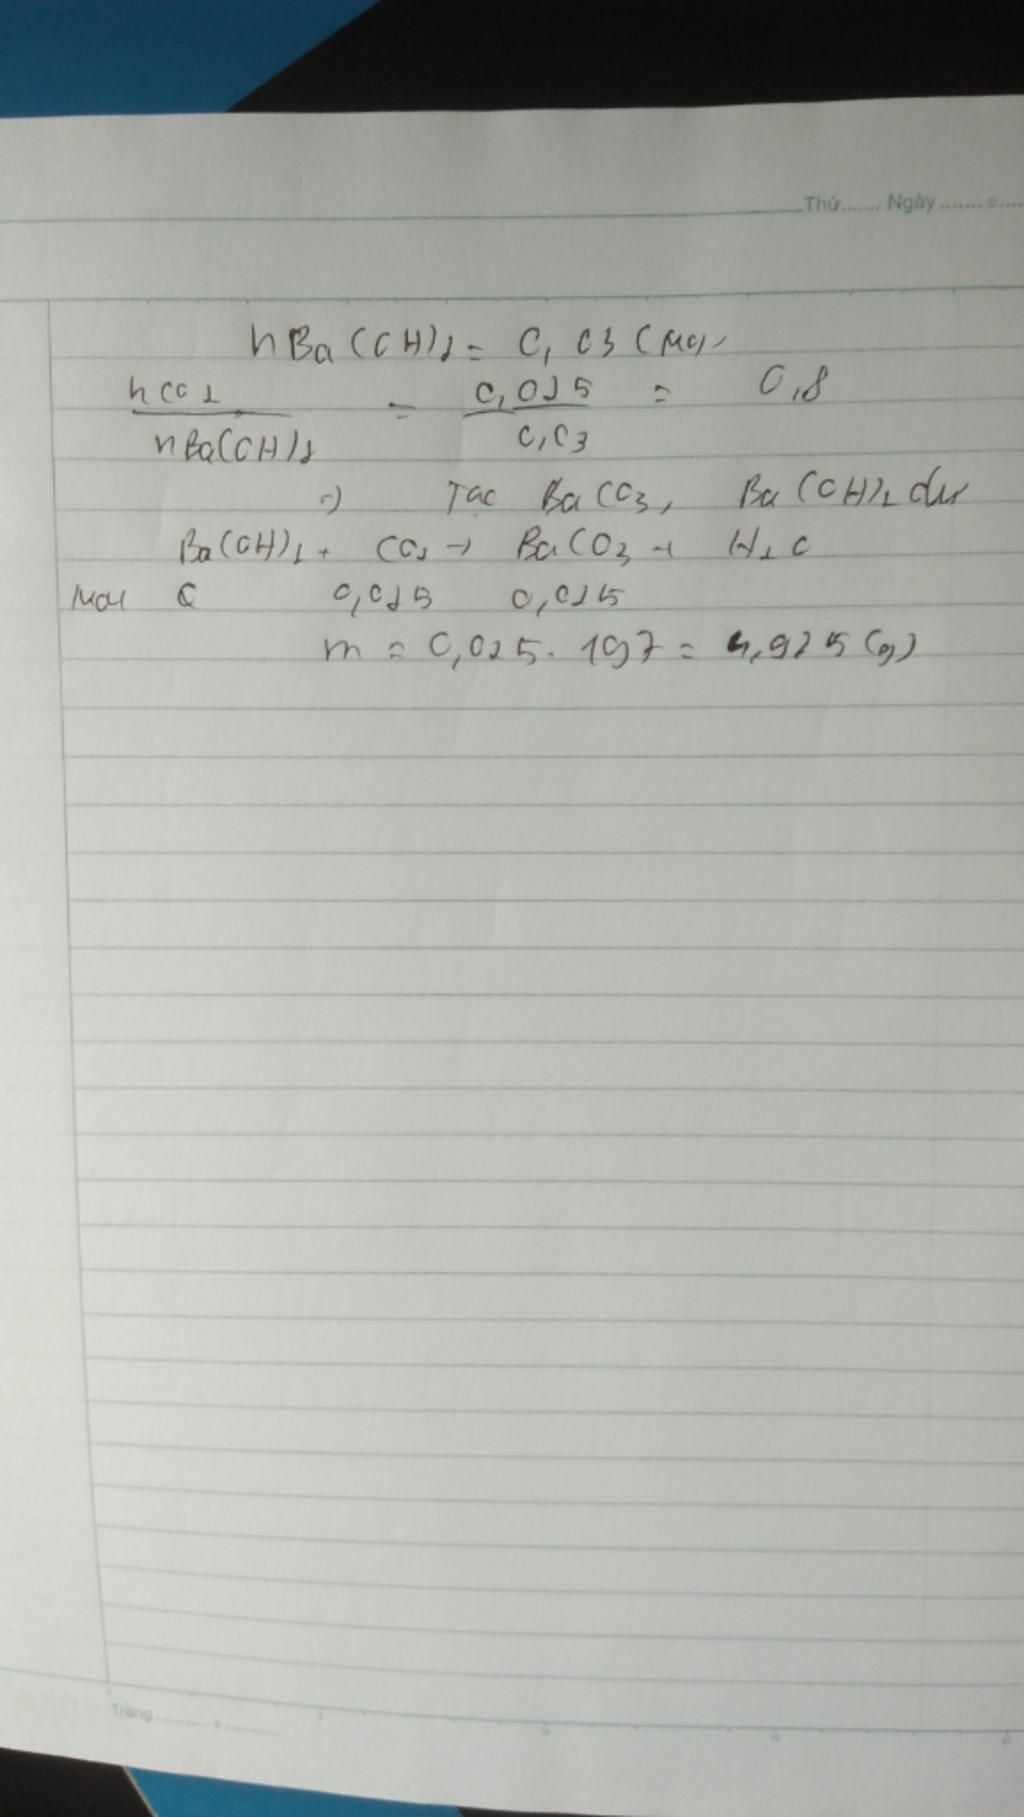 Thứ....... Ngày.......
nBa(OH)2 = 0,03 (mol)
nCO2 / nBa(OH)2 = 0,025 / 0,03 = 0,8
=> Tạo BaCO3, Ba(OH)2 dư
Ba(OH)2 + CO2 → BaCO3 + H2O
mol 0,025 0,025
m = 0,025. 197 = 4,925 (g)
Trang